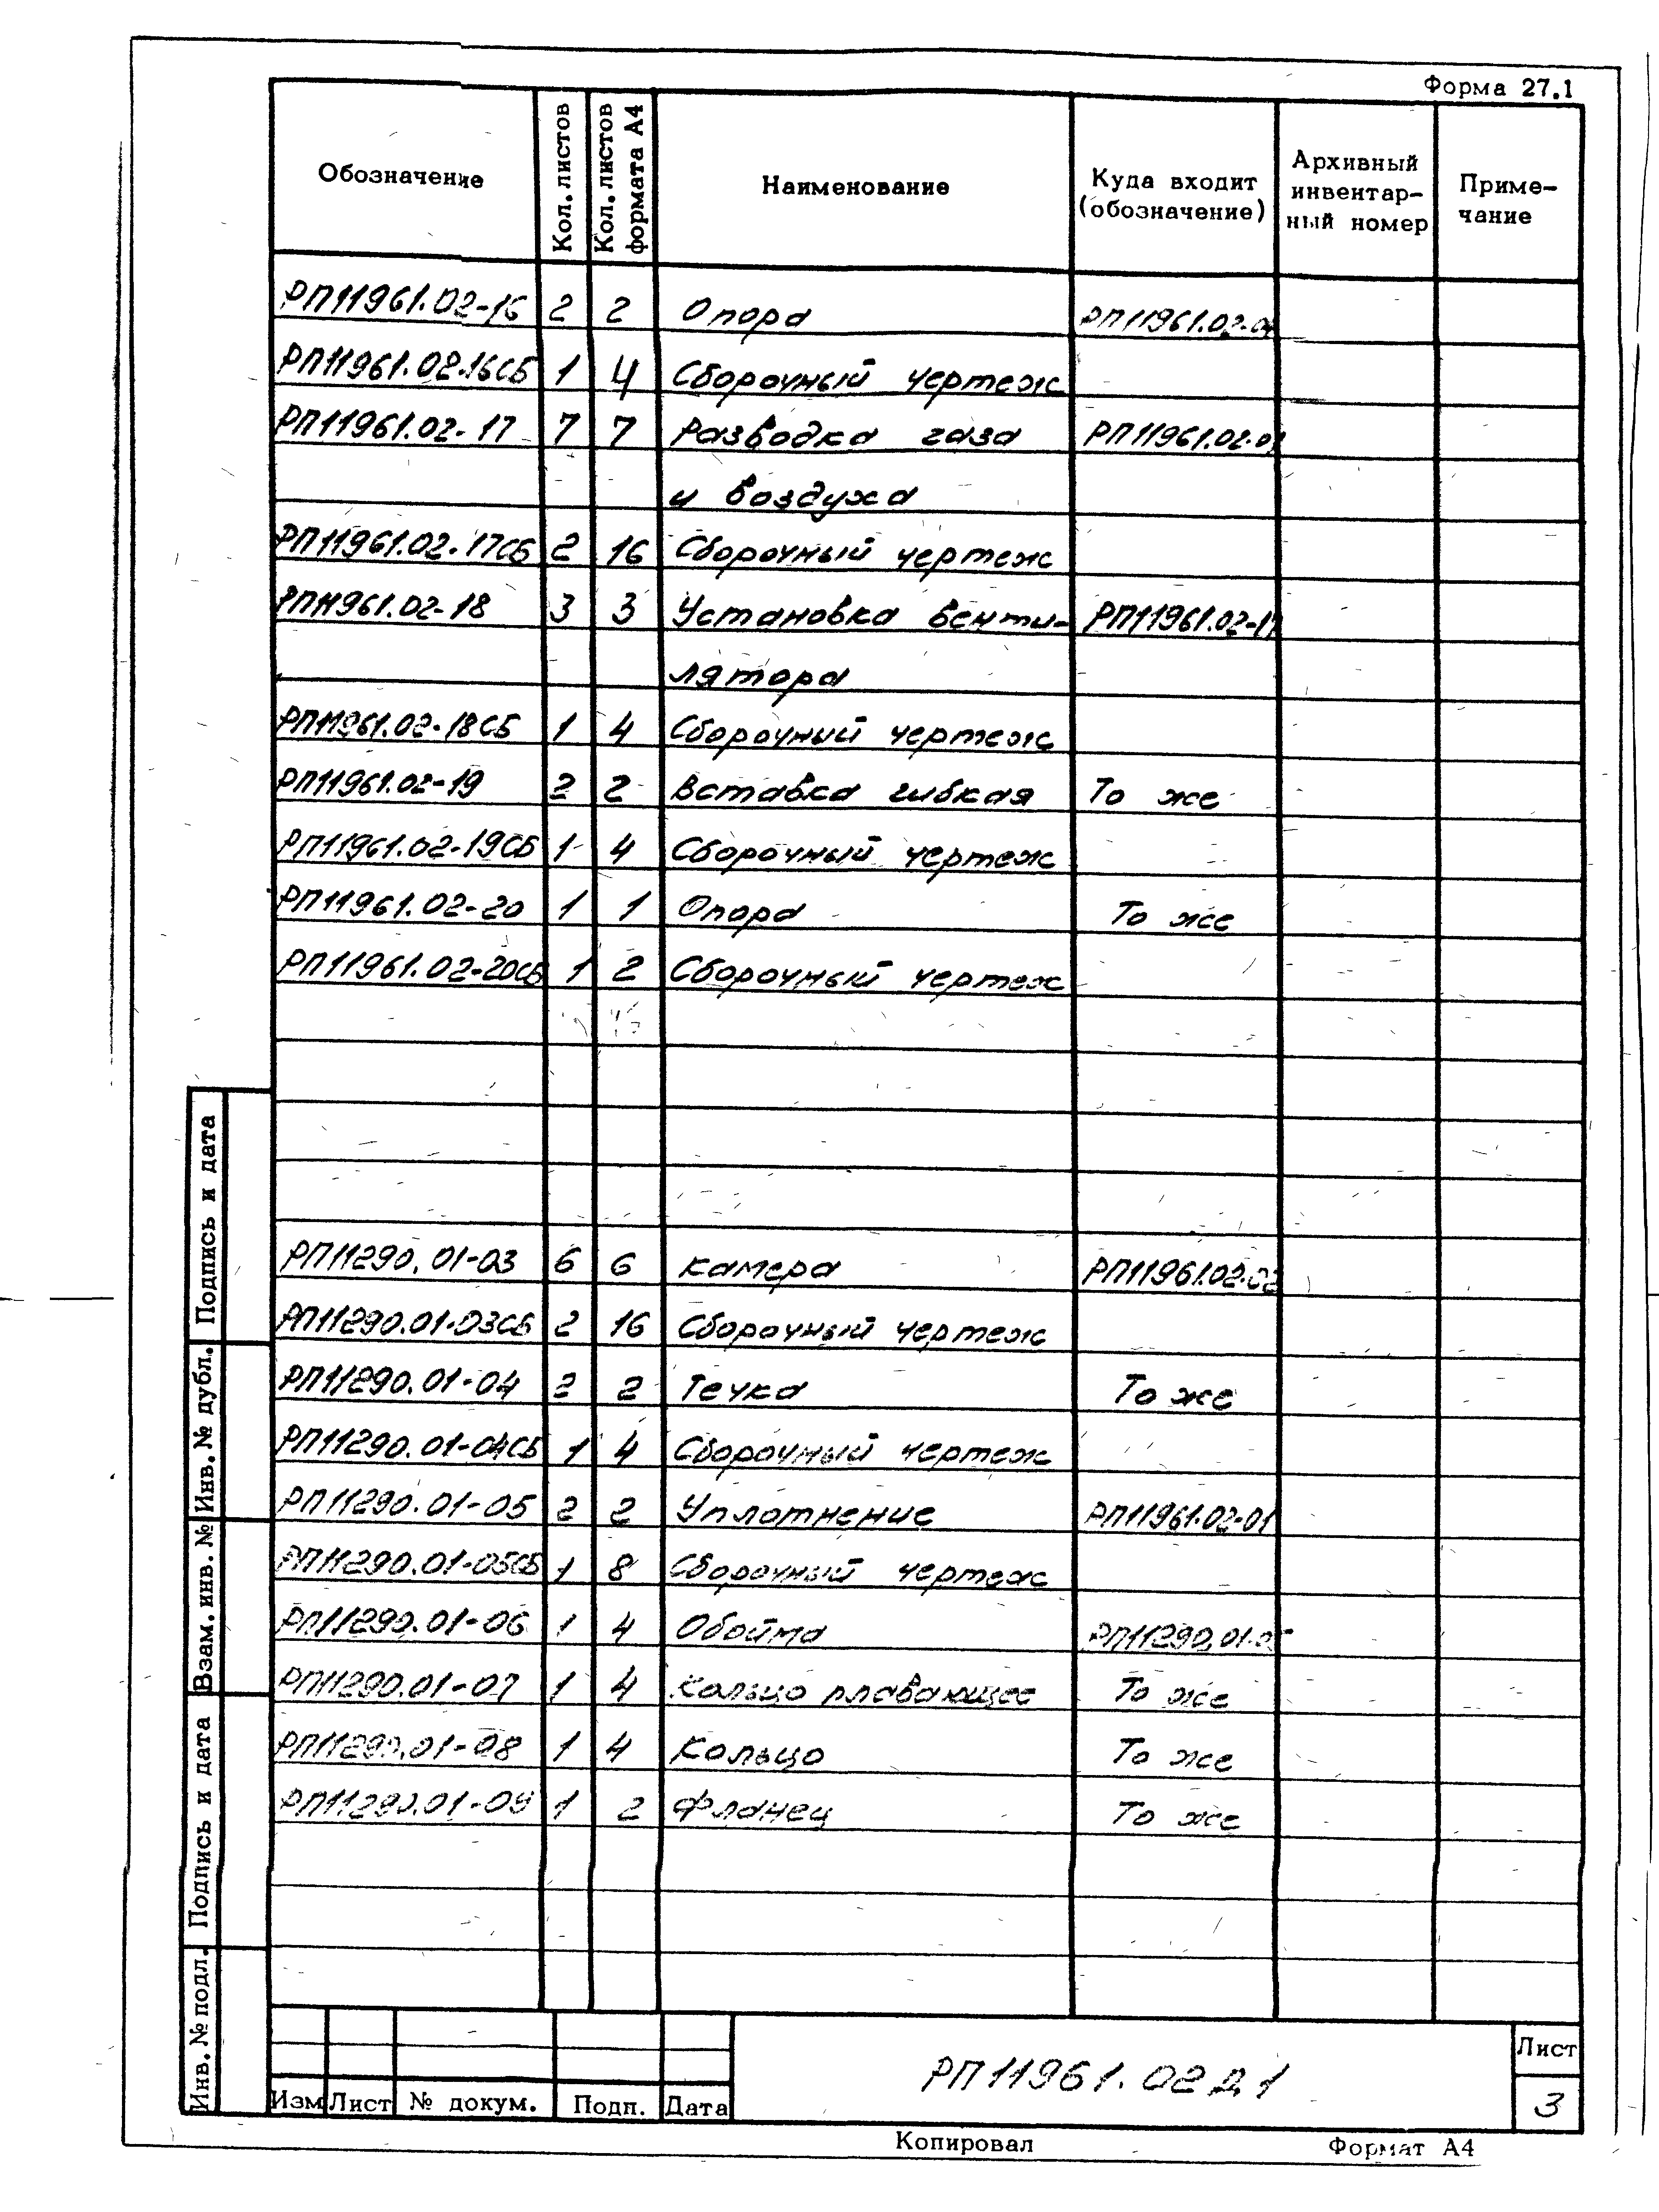 Форма 27.1
Обозначение Кол. листов Кол. листов формата А4 Наименование Куда входит (обозначение) Архивный инвентар-ный номер Приме-чание
РП11961.02-16 2 2 Опора
РП11961.02-16СБ 1 4 Сборочный чертеж
РП11961.02-17 7 7 Разводка газа
и воздуха
РП11961.02-17СБ 2 16 Сборочный чертеж
РП11961.02-18 3 3 Установка венти- РП11961.02-17
лятора
РП11961.02-18СБ 1 4 Сборочный чертеж
РП11961.02-19 2 2 Вставка гибкая То же
РП11961.02-19СБ 1 4 Сборочный чертеж
РП11961.02-20 1 1 Опора То же
РП11961.02-20СБ 1 2 Сборочный чертеж
РП11290.01-03 6 6 Камера РП11961.02-02
РП11290.01-03СБ 2 16 Сборочный чертеж
РП11290.01-04 2 2 Течка То же
РП11290.01-04СБ 1 4 Сборочный чертеж
РП11290.01-05 2 2 Уплотнение РП11961.02-01
РП11290.01-05СБ 1 8 Сборочный чертеж
РП11290.01-06 1 4 Обойма РП11290.01-05
РП11290.01-07 1 4 Кольцо плавающее То же
РП11290.01-08 1 4 Кольцо То же
РП11290.01-09 1 2 Фланец То же
Инв. № подл. Подпись и дата Взам. инв. № Инв. № дубл. Подпись и дата
Изм Лист № докум. Подп. Дата
РП11961.02Д1
Лист
3
Копировал Формат А4